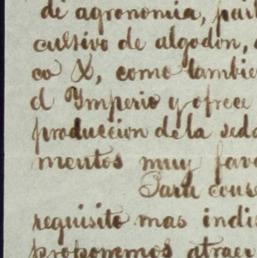 di agronomia, par
cultivo de algodon,
co X, como tambie
el Imperio y ofrece
produccion de la seda
mentos muy favo
Para conse
requisito mas indis
proponemos atraer